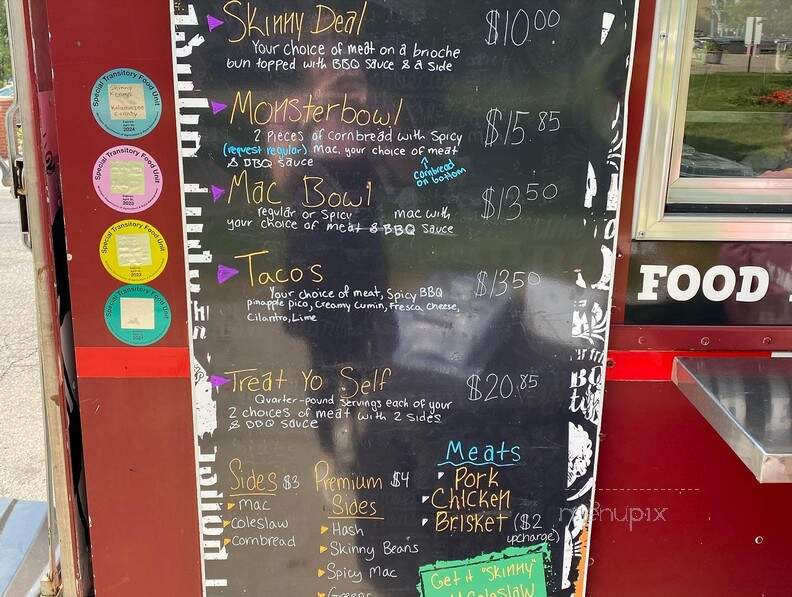 Skinny Deal $10.00
Your choice of meat on a brioche
bun topped with BBQ sauce & a side
Monsterbowl $15.85
2 pieces of cornbread with spicy
(request regular) Mac, your choice of meat
& BBQ sauce
cornbread
on bottom
Mac Bowl $13.50
regular or spicy mac with
your choice of meat & BBQ sauce
Tacos $13.50
Your choice of meat, Spicy BBQ
pineapple pico, creamy cumin, fresca cheese,
Cilantro, Lime
Treat Yo Self $20.85
Quarter-pound servings each of your
2 choices of meat with 2 sides
& BBQ sauce
Sides $3
Mac
Coleslaw
Cornbread
Premium $4
Sides
Hash
Skinny Beans
Spicy Mac
Greens
Meats
Pork
Chicken
Brisket ($2
upcharge)
Get it "Skinny"
Coleslaw
Special Transitory Food Unit
Skinny
Kenny's
Kalamazoo
County
2024
Special Transitory Food Unit
2023
Special Transitory Food Unit
2022
Special Transitory Food Unit
2021
FOOD
menupix